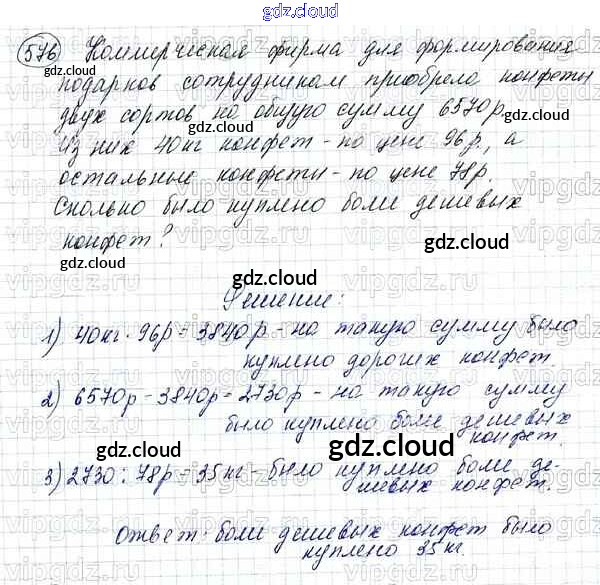 gdz.cloud
576 Коммерческая фирма для формирования
подарков сотрудникам приобрела конфеты
двух сортов на общую сумму 6570р.
gdz.cloud gdz.cloud
Из них 40кг конфет - по цене 96р., а
остальные конфеты - по цене 78р.
gdz.cloud
Сколько было куплено боли дешевых
конфет?
gdz.cloud
gdz.cloud
Решение:
gdz.cloud
1) 40кг · 96р = 3840р - на такую сумму было
куплено дорогих конфет.
gdz.cloud
2) 6570р - 3840р = 2730р - на такую сумму
было куплено боли дешевых
конфет.
gdz.cloud gdz.cloud
3) 2730 : 78р = 35кг - было куплено боли де-
шевых конфет.
gdz.cloud
Ответ: боли дешевых конфет было
куплено 35кг.
gdz.cloud